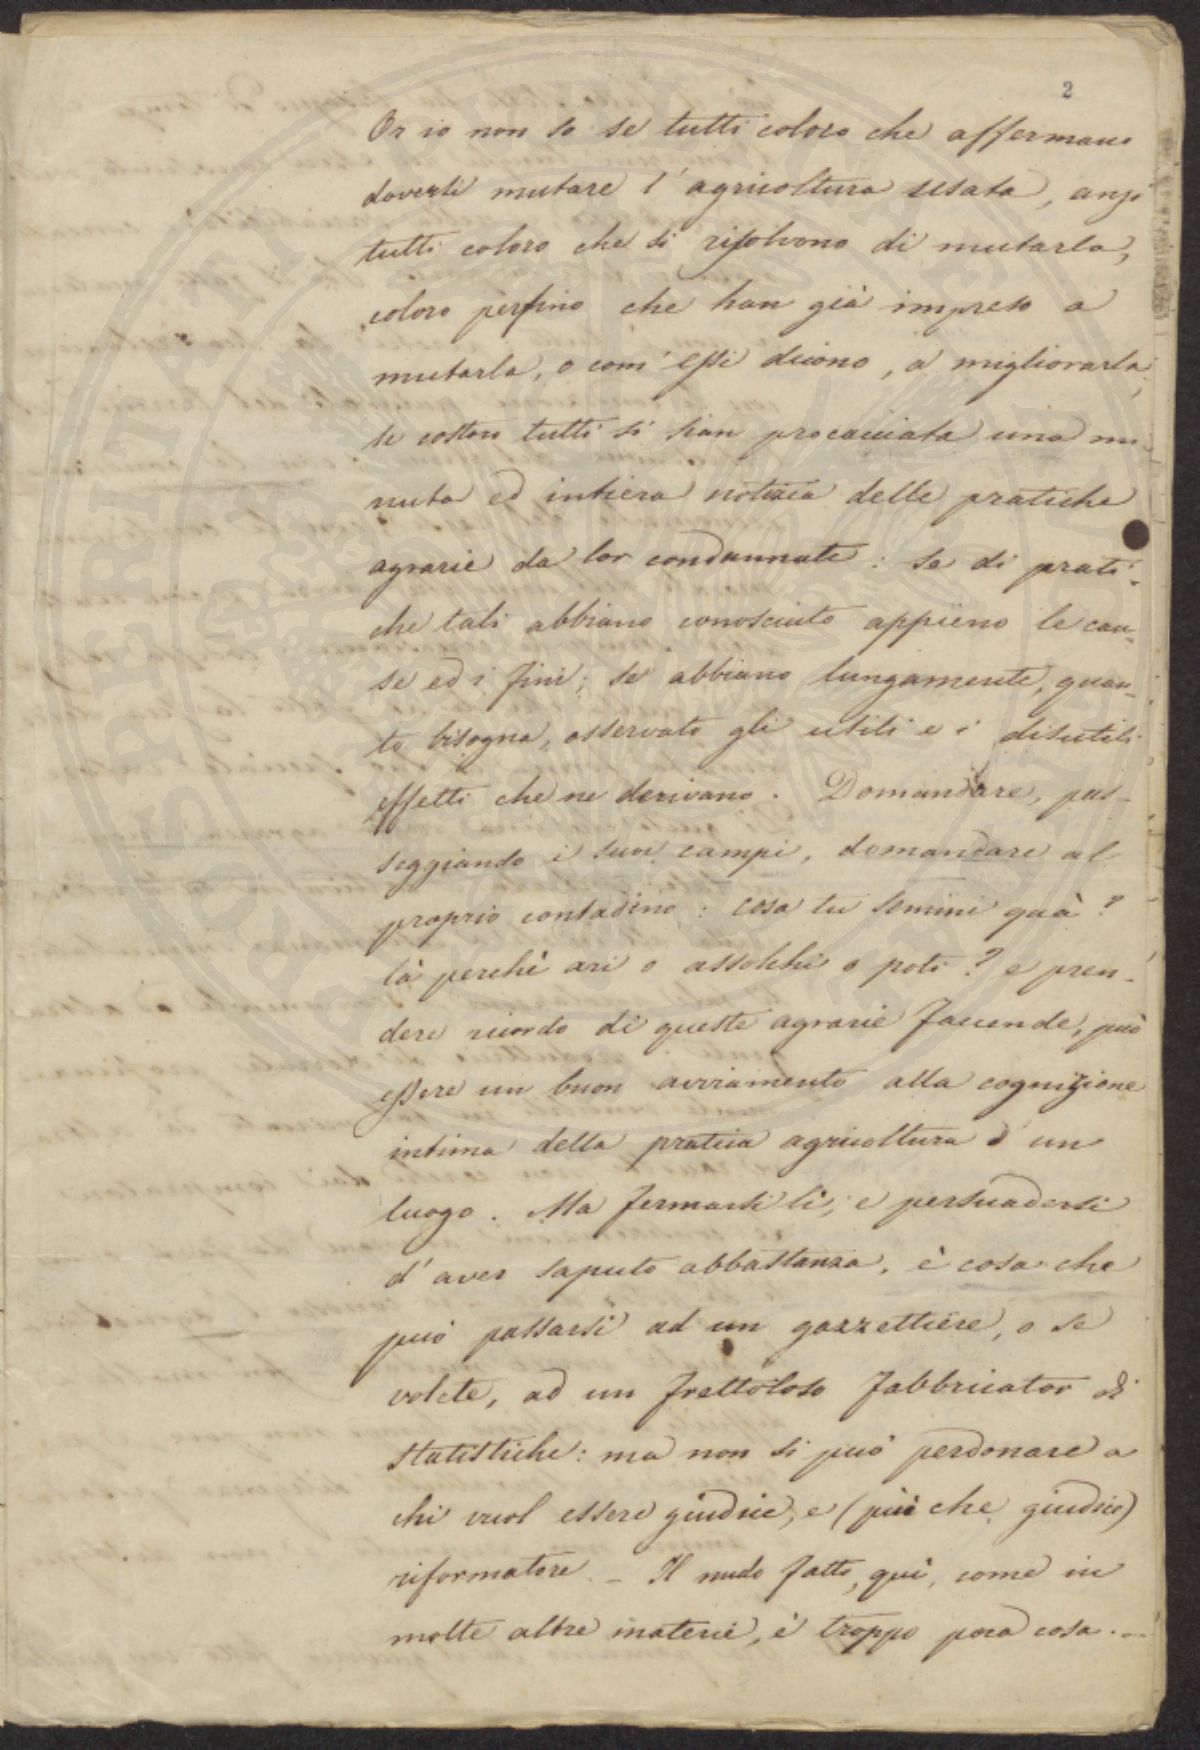 2
Or io non so se tutti coloro che affermano
doversi mutare l'agricoltura usata, anzi
tutti coloro che si risolvono di mutarla,
coloro perfino che han già impreso a
mutarla, o com'essi dicono, a migliorarla;
se costoro tutti si sian procacciata una mi
nuta ed intiera notizia delle pratiche
agrarie da lor condannate: se di prati-
che tali abbiano conosciuto appieno le cau-
se ed i fini; se abbiano lungamente, quan-
to bisogna, osservato gli utili e i disutili
effetti che ne derivano. Domandare, pas-
seggiando i suoi campi, domandare al
proprio contadino: cosa tu semini quà?
là perchè ari o assolchi o poti? e pren-
dere ricordo di queste agrarie faccende, può
essere un buon avviamento alla cognizione
intima della pratica agricoltura d'un
luogo. Ma fermarsi lì, e persuadersi
d'aver saputo abbastanza, è cosa che
può passarsi ad un gazzettiere, o se
volete, ad un frettoloso fabbricator di
statistiche: ma non si può perdonare a
chi vuol essere giudice, e (più che giudice)
riformatore. – Il nudo fatto, qui, come in
molte altre materie, è troppo poca cosa. –